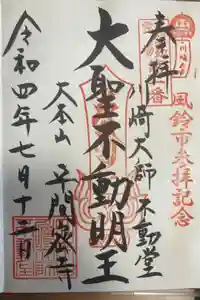 風鈴市参拝記念
奉拝
川崎大師 不動堂
大聖不動明王
大本山 平間寺
令和四年七月十三日